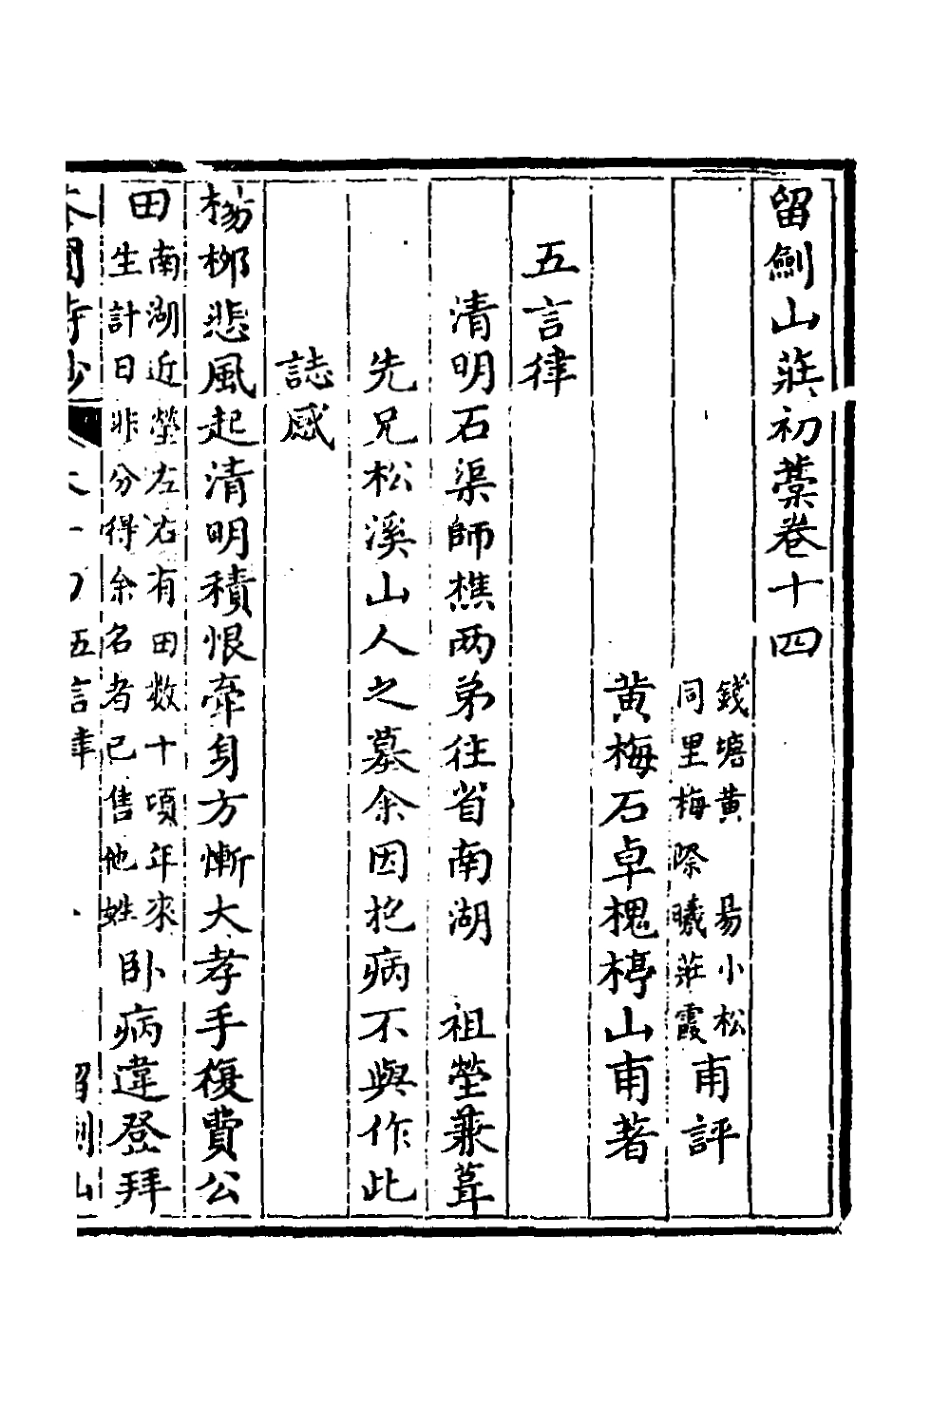 留劍山莊初藁卷十四
錢塘黄　易小松
同里梅際曦莊霞
甫評
黄梅石卓槐楟山甫著
五言律
清明石渠師樵两弟往省南湖　祖塋兼葺
先兄松溪山人之墓余因抱病不與作此
誌感
楊柳悲風起清明積恨牽身方慚大孝手復費公
田
南湖近塋左右有田数十頃年來
生計日非分得余名者已售他姓
卧病違登拜
五言律